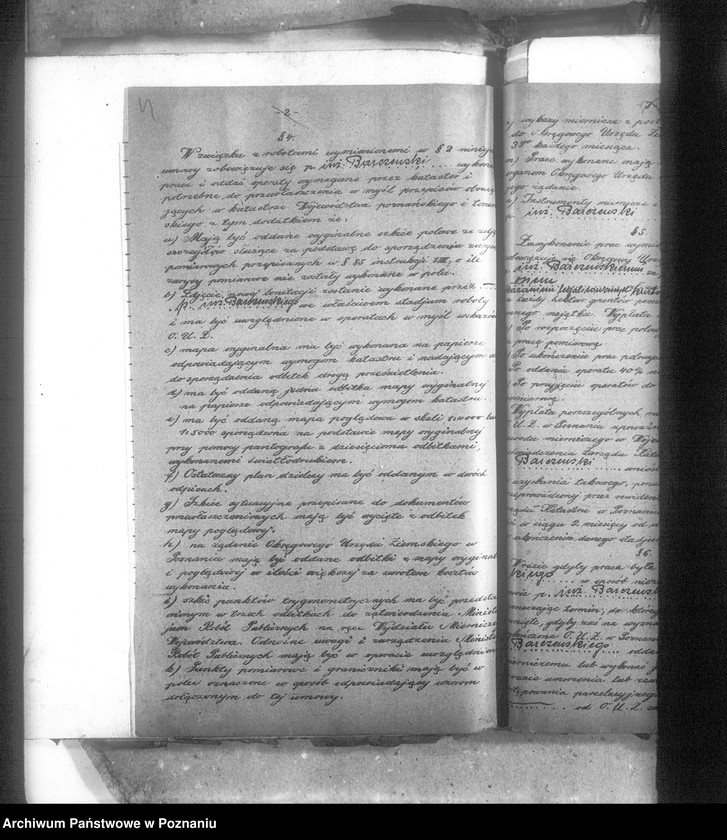 -2-
§4.
W związku z robotami wymienionemi w § 2 niniejs
umowy zobowiązuje się p. inż. Barczewski wykona
prace i oddać operaty wymagane przez kataster i
potrzebne do przewłaszczenia w myśl przepisów obowią
jących w katastrze Województwa poznańskiego i
skiego z tym dodatkiem że:
a) Mają być oddane oryginalne szkice polowe ze zdję
szczegółów służące za podstawę do sporządzenia zarys
pomiarowych przepisanych w § 85 instrukcji VIII, o ile
zarysy pomiarowe nie zostały wykonane w polu.
b) Zdjęcie nowej bonitacji zostanie wykonane przez
p. inż. Barczewskiego we właściwem stadjum roboty
i ma być uwzględnione w operatach w myśl wskazów
O. U. Z.
c) mapa oryginalna ma być wykonana na papierze
odpowiadającym wymogom katastru i nadającym
do sporządzenia odbitek drogą prześwietlenia.
d) ma być oddana jedna odbitka mapy oryginalnej
na papierze odpowiadającym wymogom katastru.
e) ma być oddana mapa poglądowa w skali 1:10000 lub
1:5000 sporządzona na podstawie mapy oryginalnej
przy pomocy pantografu z dziesięcioma odbitkami,
wykonanemi światłodrukiem.
f) Ostateczny plan dzielczy ma być oddanym w dwóch
odpisach.
g) Szkice sytuacyjne przepisane do dokumentów
przewłaszczeniowych mają być wycięte z odbitek
mapy poglądowej.
h) na żądanie Okręgowego Urzędu Ziemskiego w
Poznaniu mają być oddane odbitki z mapy oryginal
i poglądowej w ilości większej za zwrotem kosztów
wykonania.
szkic punktów trygonometrycznych ma być przedsta
wionym w trzech odbitkach do zatwierdzenia Minist
jum Robót Publicznych na ręce Wydziału Mierniczeg
Województwa. Odnośne uwagi i zarządzenia Minist
Robót Publicznych mają być w operacie uwzględnion
k) Punkty pomiarowe i graniczniki mają być w
polu oznaczone w sposób odpowiadający wzorom
dołączonym do tej umowy.
wykazy miernicze z post
do Okręgowego Urzędu Zie
3go każdego miesiąca.
m) Prace wykonane mają
organom Okręgowego Urzędu
jego żądanie.
n) Instrumenty miernicze
inż. Barczewski
§5.
Za wykonanie prac wymie
Okręgowy Urząd
inż. Barczewskiemu
każdy hektar gruntów
nego majątku. Wypłata
Po rozpoczęciu prac polow
pracę pomiarową
Po ukończeniu prac polowych
Po oddaniu operatu 40%
Po przyjęciu operatów do
Wypłata poszczególnych
U. Z. w Poznaniu
Barczewski
uzyskania takowego,
w Poznaniu
i w ciągu 2 miesięcy od
ukończenia danego stadjum
§6.
W razie gdyby praca była
w sposób
p. inż. Barczewski
termin, do której
gdyby zaś na
O. U. Z. w Poznaniu
Barczewskiego
mierniczemu lub wykonać
razie umorzenia lub
parcelacyjnego
od O. U. Z.
Archiwum Państwowe w Poznaniu